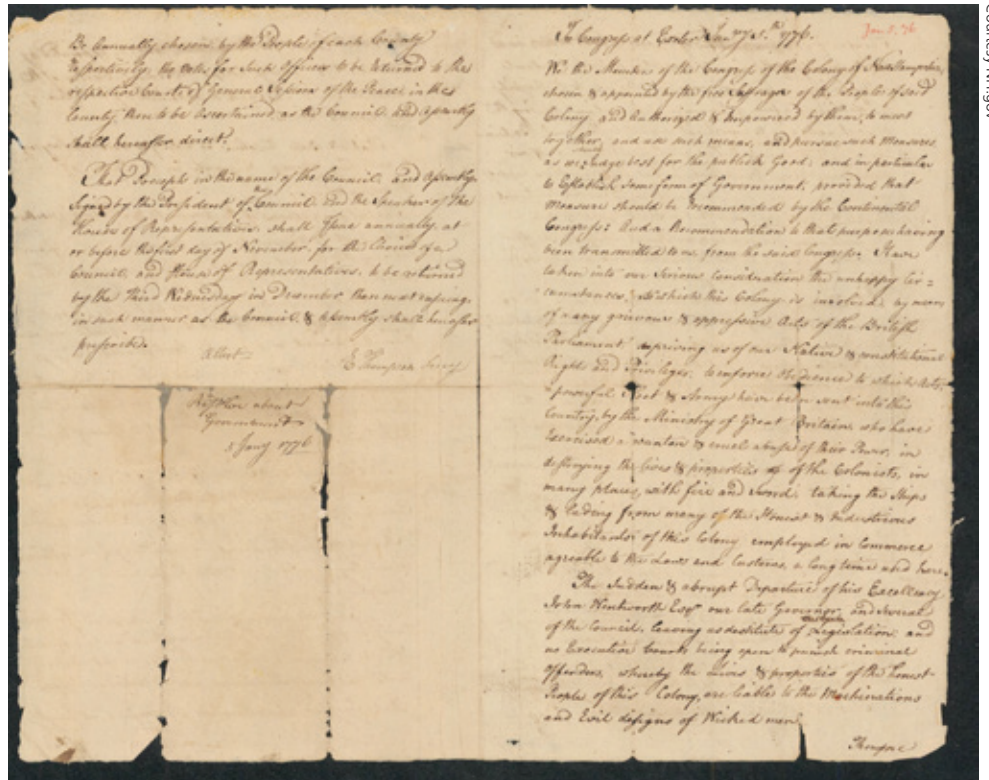 Be Annually chosen by the People of each County
respectively; the votes for such Officers to be returned to the
respective Courts of General Sessions of the Peace, in the
County, there to be Ascertained as the Council, and Assembly
shall hereafter direct.
That Precepts in the name of the Council, and Assembly
Signed by the President of the Council, and the Speaker of the
House of Representatives, shall Issue annually, at
or before the first day of November, for the Choice of a
Council, and House of Representatives, to be returned
by the third Wednesday in December then next ensuing,
in such manner as the Council, & Assembly shall hereafter
prescribe.
Attest
E Thompson Secry
about
Government
5 Jany 1776
In Congress at Exeter Janry 5th 1776.
Jan 5. 76
We the Members of the Congress of the Colony of New Hampshire,
chosen & appointed by the free Suffrages of the People of said
Colony, and Authorized & Impowered by them, to meet
together, and use such means, and pursue such Measures
as we Judge best for the publick Good; and in particular
to Establish some form of Government, provided that
Measure should be recommended by the Continental
Congress: And a Recomendation to that purpose having
been transmitted to us, from the said Congress. Have
taken into our Serious Consideration the unhappy Cir=
cumstances, into which this Colony is involved, by means
of many grievous & oppressive Acts of the British
Parliament depriving us of our Native & constitutional
Rights and Privileges. to enforce Obedience to which Acts,
a powerful Fleet & Army have been sent into this
Country, by the Ministry of Great Britain, who have
Exercised a wanton & cruel abuse of their Power, in
destroying the lives & properties of of the Colonists, in
many places, with fire and Sword; taking the Ships
& Lading from many of the Honest & Industrious
Inhabitants of this Colony employed in Commerce
agreable to the Laws and Customs, a long time used here.
The Sudden & abrupt Departure of his Excellency
John Wentworth Esqr our late Governor, and several
of the Council, leaving us destitute of Legislation; and
no Executive Courts being open to punish criminal
Offenders, whereby the Lives & properties of the honest
People of this Colony, are liable to the Machinations
and Evil designs of Wicked men,